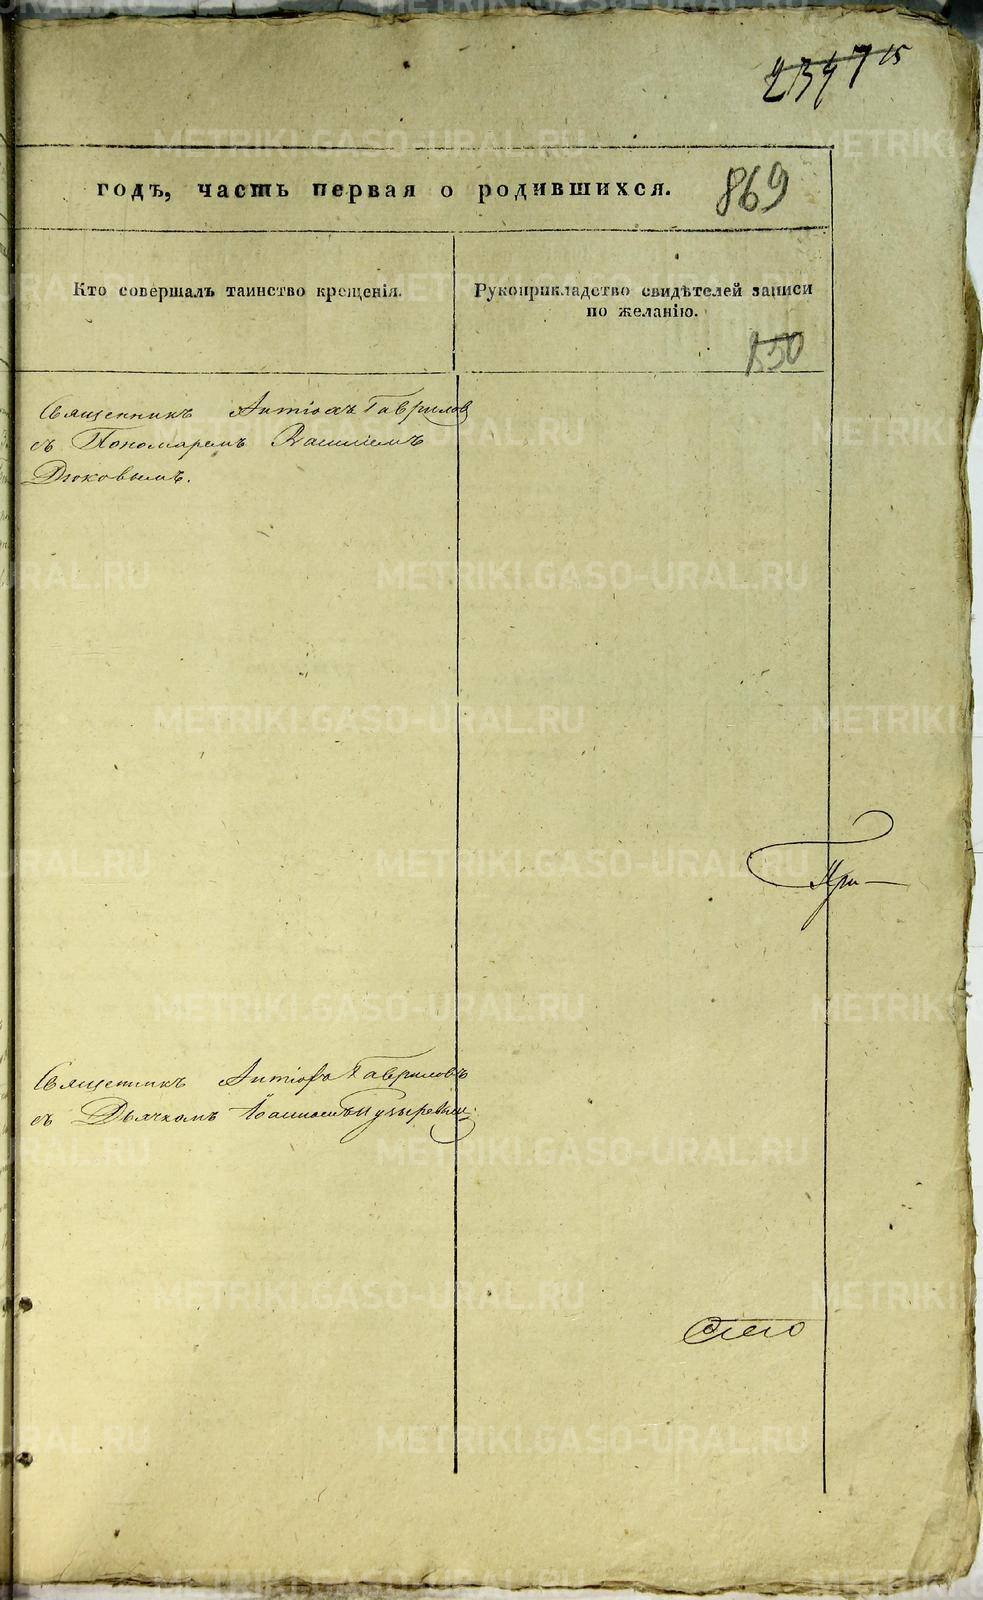 15
годъ, часть первая о родившихся.
869
Кто совершалъ таинство крещенія.
Рукоприкладство свидѣтелей записи
по желанію.
850
Священникъ Антіохъ Гавриловъ
съ Пономаремъ Василіемъ
Дюковымъ.
При-
Священникъ Антіохъ Гавриловъ
съ Дьячкомъ Іоанномъ Пузыревымъ.
METRIKI.GASO-URAL.RU